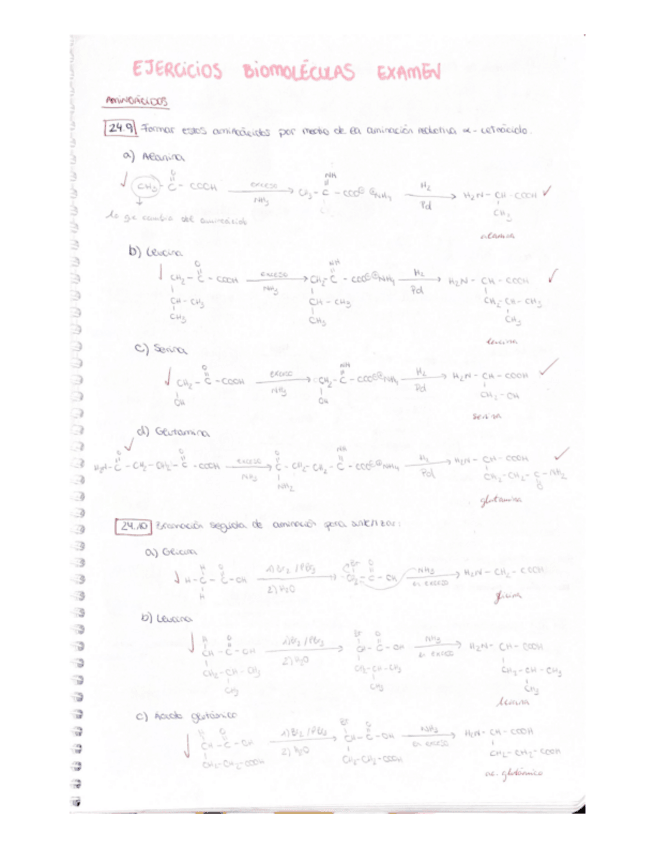 EJERCICIOS BIOMOLÉCULAS EXAMEN
AMINOÁCIDOS
24.9 Formar estos aminoácidos por medio de la aminación reductiva α-cetoácido.
a) Alanina
CH3 - C - COOH exceso NH3 CH3 - C - COO⊖ ⊕NH4 H2 Pd H2N - CH - COOH
O NH CH3
lo que cambia del aminoácido
alanina
b) Leucina
O NH
CH2 - C - COOH exceso NH3 CH2 - C - COO⊖ ⊕NH4 H2 Pd H2N - CH - COOH
CH - CH3 CH - CH3 CH2 - CH - CH3
CH3 CH3 CH3
leucina
c) Serina
O NH
CH2 - C - COOH exceso NH3 CH2 - C - COO⊖ ⊕NH4 H2 Pd H2N - CH - COOH
OH OH CH2 - OH
serina
d) Glutamina
O O O NH
H2N - C - CH2 - CH2 - C - COOH exceso NH3 C - CH2 - CH2 - C - COO⊖ ⊕NH4 H2 Pd H2N - CH - COOH
NH2 CH2 - CH2 - C - NH2
O
glutamina
24.10 Bromación seguida de aminación para sintetizar:
a) Glicina
H O Br O
H - C - C - OH 1) Br2 / PBr3 2) H2O CH2 - C - OH NH3 en exceso H2N - CH2 - COOH
H
glicina
b) Leucina
H O Br O
CH - C - OH 1) Br2 / PBr3 2) H2O CH - C - OH NH3 en exceso H2N - CH - COOH
CH2 - CH - CH3 CH2 - CH - CH3 CH2 - CH - CH3
CH3 CH3 CH3
leucina
c) Ácido glutámico
H O Br O
CH - C - OH 1) Br2 / PBr3 2) H2O CH - C - OH NH3 en exceso H2N - CH - COOH
CH2 - CH2 - COOH CH2 - CH2 - COOH CH2 - CH2 - COOH
ac. glutámico